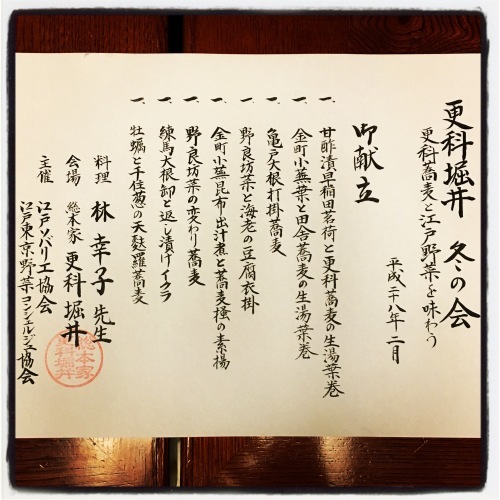 更科堀井 冬の会
更科蕎麦と江戸野菜を味わう
平成二十八年二月
御献立
一、甘酢漬早稲田茗荷と更科蕎麦の生湯葉巻
一、金町小蕪葉と田舎蕎麦の生湯葉巻
一、亀戸大根打掛蕎麦
一、野良坊菜と海老の豆腐衣掛
一、金町小蕪昆布出汁煮と蕎麦掻の素揚
一、野良坊菜の変わり蕎麦
一、練馬大根卸と返し漬けイクラ
一、牡蠣と千住葱の天麩羅蕎麦
料理 林幸子先生
会場 総本家 更科堀井
主催 江戸ソバリエ協会
江戸東京野菜コンシェルジュ協会
総本家
更科堀井